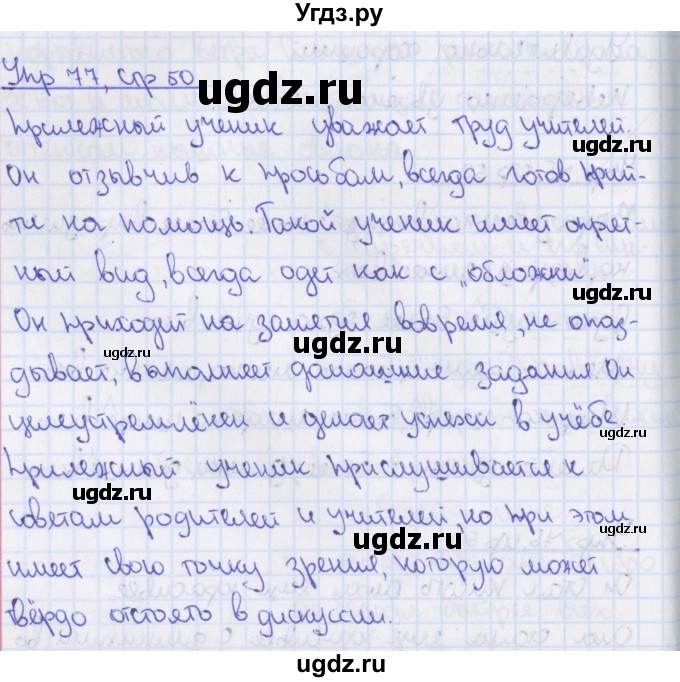 Угдз.ру
Упр 77, стр 50
ugdz.ru
Прилежный ученик уважает труд учителей.
Он отзывчив к просьбам, всегда готов прий-
ugdz.ru
ти на помощь. Такой ученик имеет опрят-
ный вид, всегда одет как с „обложки".
ugdz.ru
Он приходит на занятия вовремя, не опаз-
ugdz.ru
ugdz.ru
дывает, выполняет домашние задания. Он
целеустремлёнен и делает успехи в учёбе.
ugdz.ru
Прилежный ученик прислушивается к
ugdz.ru
ugdz.ru
советам родителей и учителей, но при этом
ugdz.ru
имеет свою точку зрения, которую может
твёрдо отстоять в дискуссии.
ugdz.ru
ugdz.ru